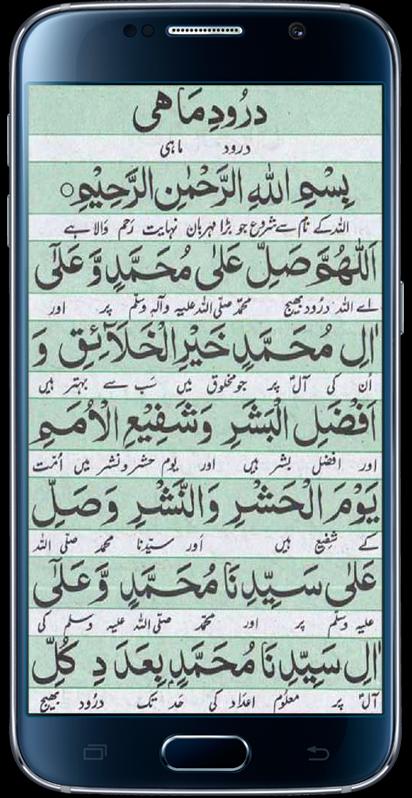 درُودِ مَاهی
درود ماہی
بِسْمِ اللهِ الرَّحْمٰنِ الرَّحِيْمِ ○
اللہ کے نام سے شروع جو بڑا مہربان نہایت رحم والا ہے
اَللّٰهُمَّ صَلِّ عَلٰى مُحَمَّدٍ وَّ عَلٰٓى
اے اللہ درُود بھیج محمّد صلی اللہ علیہ وآلہٖ وسلم پر اور
اٰلِ مُحَمَّدٍ خَيْرِ الْخَلَآئِقِ وَ
اُن کی آل پر جو مخلوق میں سَب سے بہتر ہیں
اَفْضَلِ الْبَشَرِ وَشَفِيْعِ الْاُمَمِ
اور افضل بشر ہیں اور یوم حشر و نشر میں اُمّت
يَوْمَ الْحَشْرِ وَالنَّشْرِ وَصَلِّ
کے شفیع ہیں اَور سیّدنا محمد صلّی اللہ
عَلٰى سَيِّدِنَا مُحَمَّدٍ وَّعَلٰٓى
علیہ وسلّم پر اور محمّد صلی اللہ علیہ وسلم کی
اٰلِ سَيِّدِنَا مُحَمَّدٍ بِعَدَدِ كُلِّ
آل پر معلُوم اعدَاد کی حَد تک درُود بھیج